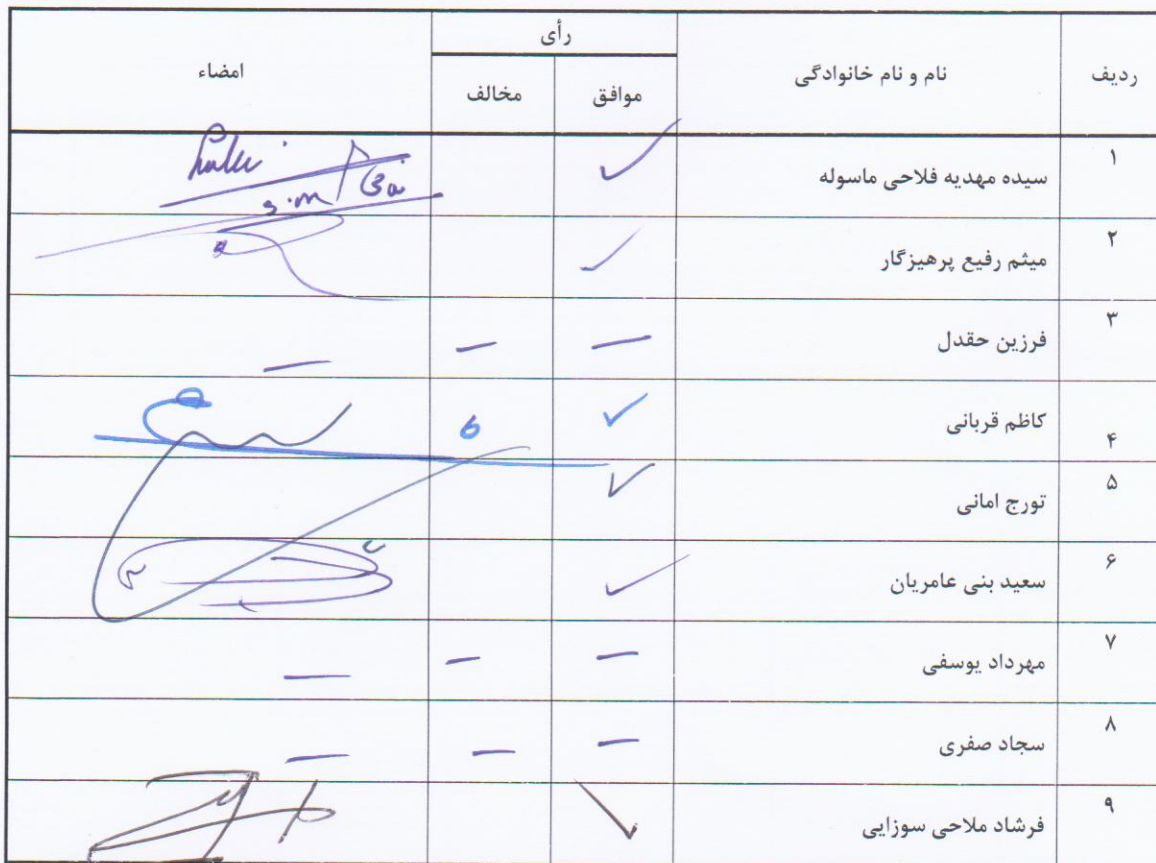 ردیف نام و نام خانوادگی رأی امضاء
موافق مخالف
۱ سیده مهدیه فلاحی ماسوله ✓
۲ میثم رفیع پرهیزگار ✓
۳ فرزین حقدل — — —
۴ کاظم قربانی ✓
۵ تورج امانی ✓
۶ سعید بنی عامریان ✓
۷ مهرداد یوسفی — — —
۸ سجاد صفری — — —
۹ فرشاد ملاحی سوزایی ✓